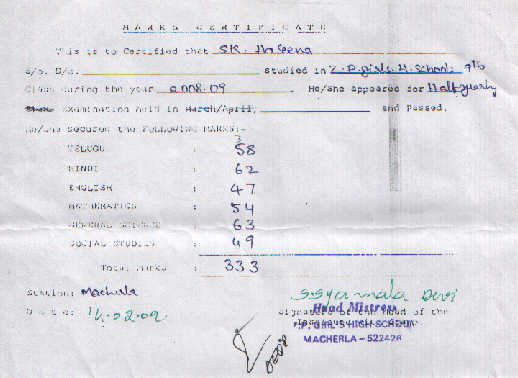 MARKS CERTIFICATE
This is to Certified that SK.
S/o. D/o. studied in Z.P.girls H.School 9th
Class during the year 2008-09 He/She appeared for Halfyearly
Examination held in March/April, and Passed.
He/She secured the FOLLOWING MARKS:-
TELUGU : 58
HINDI : 62
ENGLISH : 47
MATHEMATICS : 54
GENERAL SCIENCE : 63
SOCIAL STUDIES : 49
Total Marks : 333
Station: Macherla
S Syamala Devi
Date: -02-09
Signature of the Head of the
Head Mistress
Z.P. GIRL'S HIGH SCHOOL
MACHERLA - 522426